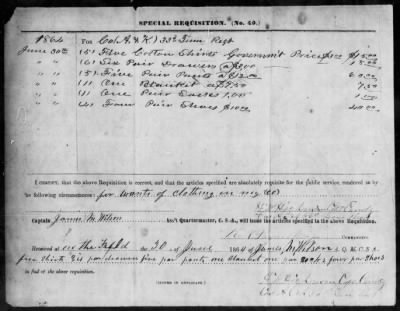 SPECIAL REQUISITION. (No. 40.)
1864 For Co (A & K) 33d Tenn Regt
June 30th (5) Five Cotton Shirts Government Price $15.00
" " (6) Six Pair Drawers @ 3.00 18.00
" " (5) Five Pair Pants @ 12.00 60.00
" " (1) One Blanket @ 7.50 7.50
" " (1) One Pair Socks 1.00 1.00
" " (4) Four Pair Shoes $10.00 40.00
I CERTIFY, that the above Requisition is correct, and that the articles specified are absolutely requisite for the public service rendered so by the
following circumstances: for wants of clothing in my Co
Captain James M. Wilson Ass't Quartermaster, C. S. A., will issue the articles specified in the above Requisition.
COMMANDING.
RECEIVED at in the Field the 30 of June 1864 of James M Wilson A. Q. M. C. S. A.
five shirts six par drawers five par pants one blanket one par socks four par shoes
in full of the above requisition.
(SIGNED IN DUPLICATE.)